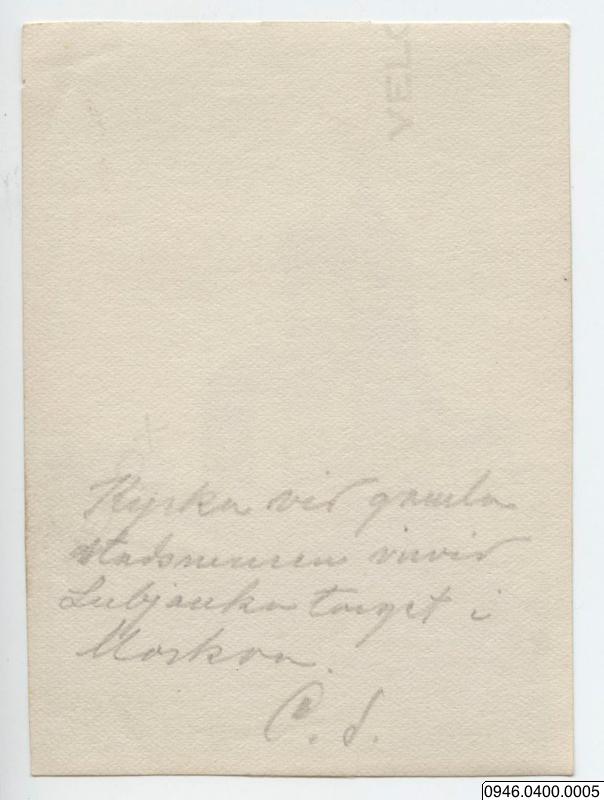 Kyrka vid gamla
stadsmuren invid
Lubjanka torget i
Moskva.
C. S.
0946.0400.0005